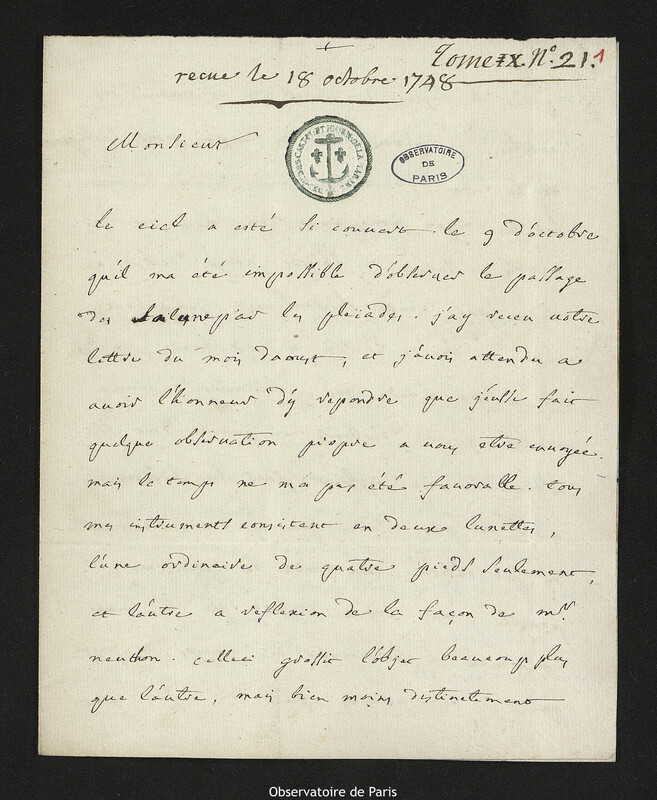 Tome IX. N.° 21. 1
recue le 18 octobre 1748
Monsieur
OBSERVATOIRE
DE
PARIS
le ciel a esté si couvert le 9 d'octobre
qu'il m'a été impossible d'observer le passage
de la lune par les pleiades. j'ay receu votre
lettre du mois d'aoust, et j'avois attendu a
avoir l'honneur d'y repondre que j'eusse fait
quelque observation propre a vous etre envoyée.
mais le temps ne m'a pas été favorable. tous
mes instruments consistent en deux lunettes,
l'une ordinaire de quatre pieds seulement,
et l'autre a reflexion de la façon de mr.
neuthon. celleci grossit l'objet beaucoup plus
que l'autre, mais bien moins distinctement
Observatoire de Paris